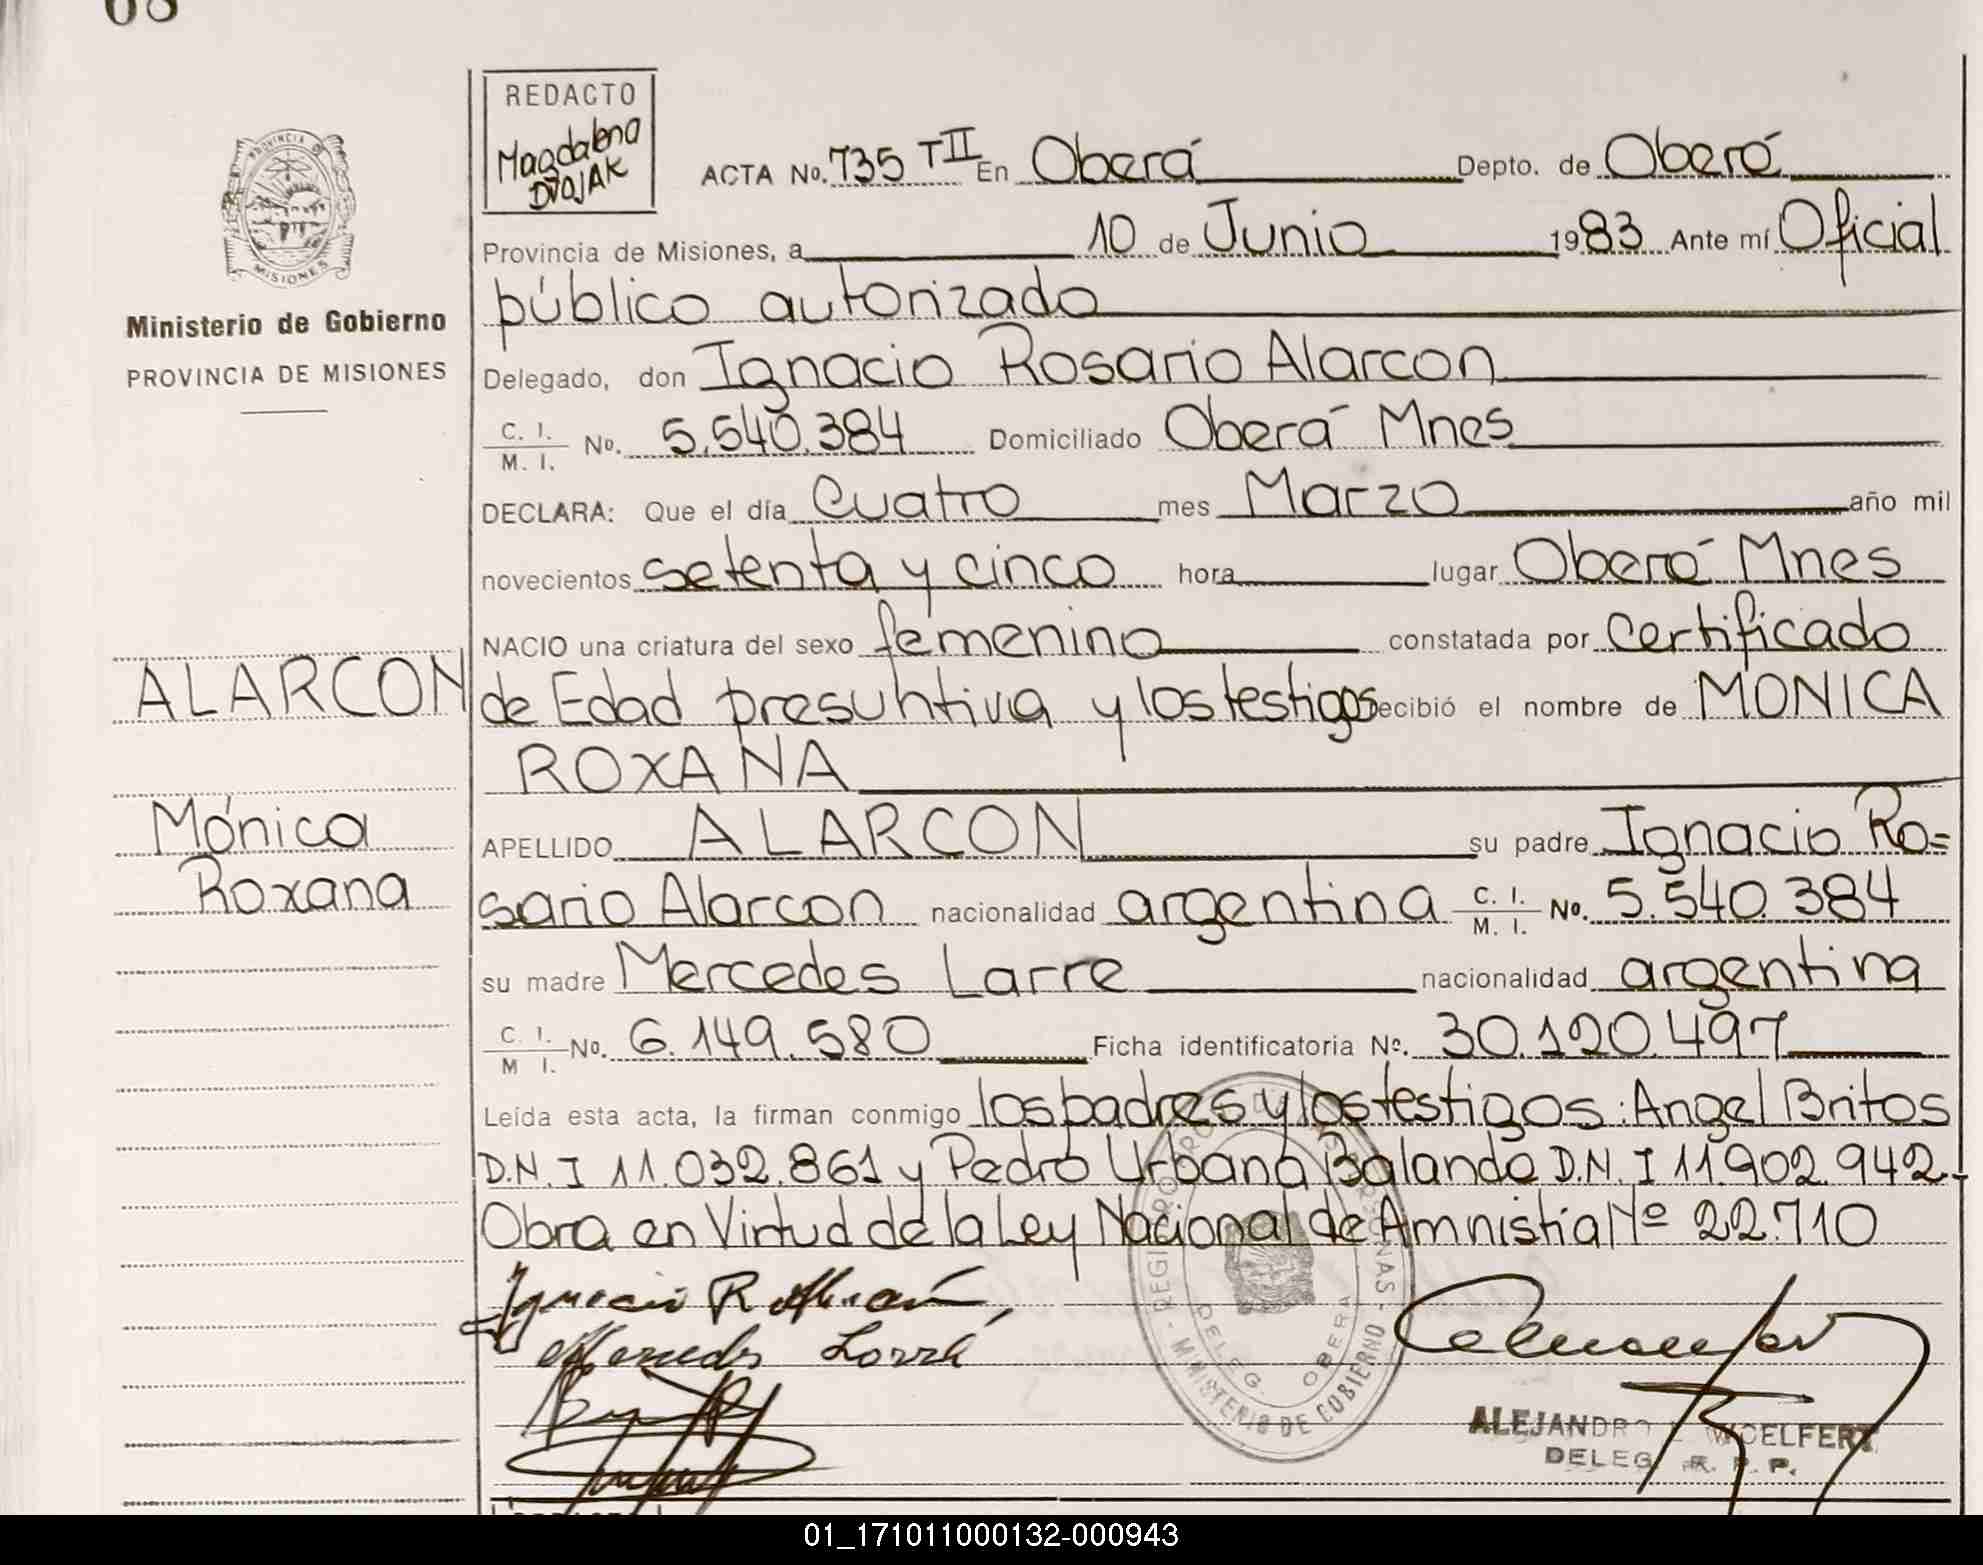 68
REDACTO
Magdalena
DVOJAK
ACTA No. 735 TII En Oberá Depto. de Oberá
Provincia de Misiones, a 10 de Junio 1983 Ante mí Oficial
público autorizado
Delegado, don Ignacio Rosario Alarcon
C. I. / M. I. No. 5.540.384 Domiciliado Oberá Mnes
DECLARA: Que el día Cuatro mes Marzo año mil
novecientos setenta y cinco hora lugar Oberá Mnes
NACIO una criatura del sexo femenino constatada por Certificado
de Edad presuntiva y los testigos recibió el nombre de MONICA
ROXANA
APELLIDO ALARCON su padre Ignacio Ro=
sario Alarcon nacionalidad argentina C. I. / M. I. No. 5.540.384
su madre Mercedes Larre nacionalidad argentina
C. I. / M I. No. 6.149.580 Ficha identificatoria Nº. 30.120.497
Leída esta acta, la firman conmigo los padres y los testigos: Angel Britos
D.N.I 11.032.861 y Pedro Urbano Balande D.N.I 11.902.942-
Obra en Virtud de la Ley Nacional de Amnistía Nº 22.710
PROVINCIA DE
MISIONES
Ministerio de Gobierno
PROVINCIA DE MISIONES
ALARCON
Mónica
Roxana
Ignacio R Alarcón
Mercedes Larré
MINISTERIO DE GOBIERNO
DELEG. OBERA
ALEJANDRO WOELFERT
DELEG. R. P. P.
01_171011000132-000943